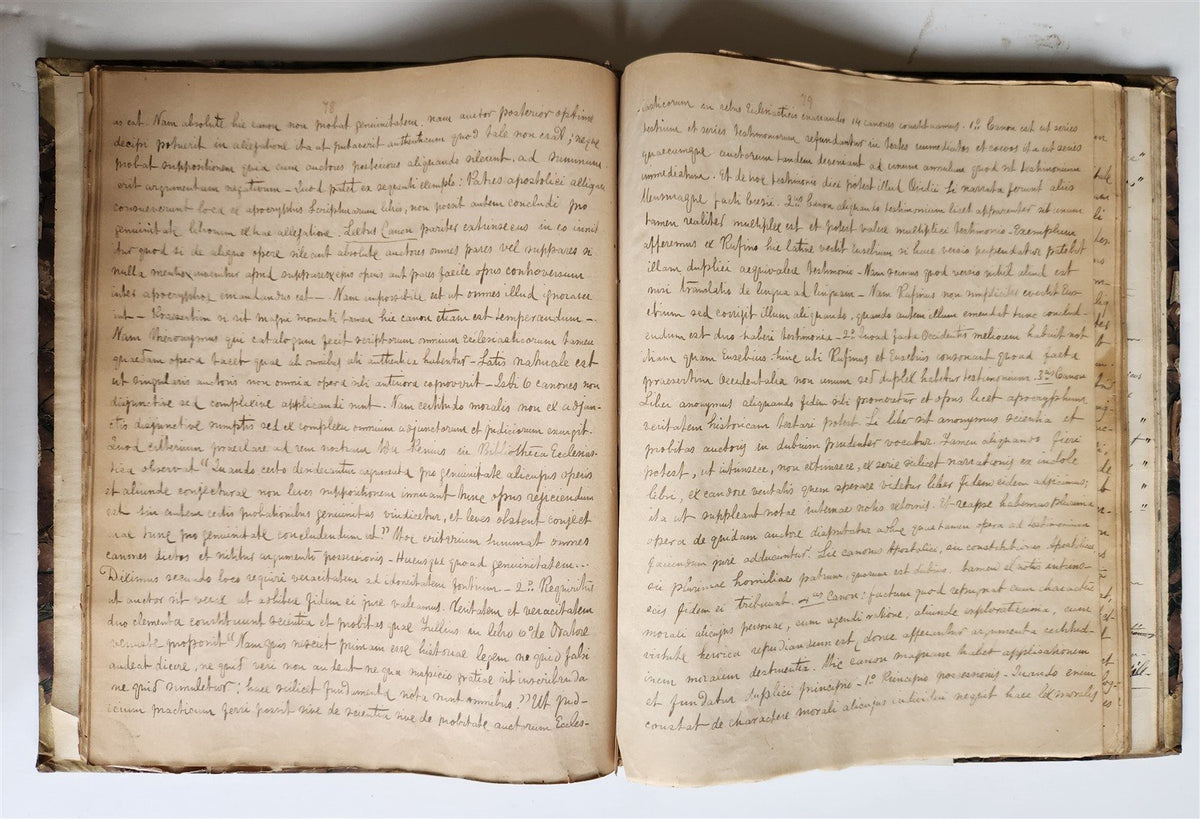 78
as est. Nam absolute hic canon non probat genuinitatem, nam auctor posterior optime
decipi potuerit in allegatione ita ut putaverit authenticum quod tale non erat; neque
probat suppositionem quia cum auctores posteriores aliquando silerint, ad summum
erit argumentum negativum - Quod patet ex sequenti exemplo: Patres apostolici allegare
consueverunt loca ex apocryphis Scripturarum libris, non possit autem concludi pro
genuinitate librorum ex hac allegatione. Sextus Canon pariter extrinsecus in eo innit
tur quod si de aliquo opere sileant absolute auctores omnes pares vel suppares si
nulla mentio apud suppares ejus operis aut pares facile opus controversum
inter apocryphos emandandus est - Nam impossibile est ut omnes illud ignorave
rint - Praesertim si sit magni momenti tamen hic canon etiam est temperandum -
Nam Hieronymus qui catalogum fecit scriptorum omnium Ecclesiasticorum tamen
quaedam opera tacet quae ab omnibus uti authentica habentur - Satis naturale est
ut singularis auctoris non omnia opera sibi anteriora cognoverit - Isti 6 canones non
disjunctive sed complexive applicandi sunt. Nam certitudo moralis non ex adjun-
ctis disjunctive sumptis sed ex complexu omnium adjunctorum et judiciorum exurgit.
Quod criterium praeclare ad rem nostram in Bibliotheca Ecclesias-
tica observat "Quando certo demonstrantur argumenta pro genuinitate alicujus operis
et aliunde conjecturae non leves suppositionem innuant tunc opus rejiciendum
est sin autem certis probationibus genuinitas vindicetur, et leves obstent conject
urae tunc pro genuinitate concludendum est" Hoc criterium summat omnes
canones dictos et nititur argumento possessionis - Hucusque quoad genuinitatem...
Diximus secundo loco requiri veracitatem ad idoneitatem fontium - 2.º Requiritur
ut auctor sit verax ut adhibere fidem ei jure valeamus. Veritatem et veracitatem
duo elementa constituunt scientia et probitas quae Tullius in libro 2º de Oratore
venuste proposit "Nam quis nescit primam esse historiae legem ne quid falsi
audeat dicere, ne quid veri non audeat ne qua suspicio gratiae sit in scribenda
ne quid simultatis: haec scilicet fundamenta nota sunt omnibus." Ut jud-
icium practicum ferri possit sive de scientia sive de probitate auctorum Eccles-
79
iasticorum in rebus Ecclesiasticis enarrandis 14 canones constituamus. 1us Canon est ut series
testium et series testimoniorum refundantur in testes immediatos et coaevos ita ut series
quaecumque auctorum tandem deveniant ad unum annulum quod sit testimonium
immediatum. Et de hoc testimonio dici potest illud Ovidii Si narrata ferunt aliis
Mensuraque facti crescit. 2us Canon aliquando testimonium licet apparenter sit unum
tamen realiter multiplex est et potest valere multiplici testimonio. Exemplum
afferemus ex Rufino hic latine vertit Eusebium si haec versio rependatur patebit
illam duplici aequivalere testimonio - Nam scimus quod versio nihil aliud est
nisi translatio de lingua ad linguam - Nam Rufinus non simpliciter evertit Eus-
ebium sed corrigit illum aliquando, quando autem illum emendat tunc conclud-
endum est duo haberi testimonia - 2.º Quoad facta Occidentis meliorem habuit not
itiam quam Eusebius: hinc ubi Rufinus et Eusebius consonant quoad facta
praesertim Occidentalia non unum sed duplex habetur testimonium. 3us Canon
Liber anonymus aliquando fidem sibi promeretur et opus licet apocryphum
veritatem historicam testare potest. Si liber sit anonymus scientia et
probitas auctoris in dubium prudenter vocatur. Tamen aliquando fieri
potest, ut intrinsece, non extrinsece, ex serie scilicet narrationis ex indole
libri, ex candore veritatis quem sperare videtur liber fidem eidem adjicimus;
ita ut suppleant notae internae notis externis. Et reapse habemus plurima
opera de quibus auctore disputatur adhuc quae tamen opera ad testimonium
faciendum jure adducuntur. Sic canones Apostolici, seu constitutiones Apostolicae
sic plurimae homiliae patrum, quarum est dubius, tamen ex notis intrin-
secis fidem ei tribuunt. 4us Canon: factum quod repugnat cum charactere
morali alicujus personae, cum agendi ratione, aliunde exploratissima, cum
virtute heroica repudiandum est, donec afferantur argumenta certitud-
inem moralem destinentia. Hic canon magnam habet applicationem
et fundatur duplici principio - 1º Principio possessionis - Quando enim
constat de charactere morali alicujus individui nequit haec lex moralis